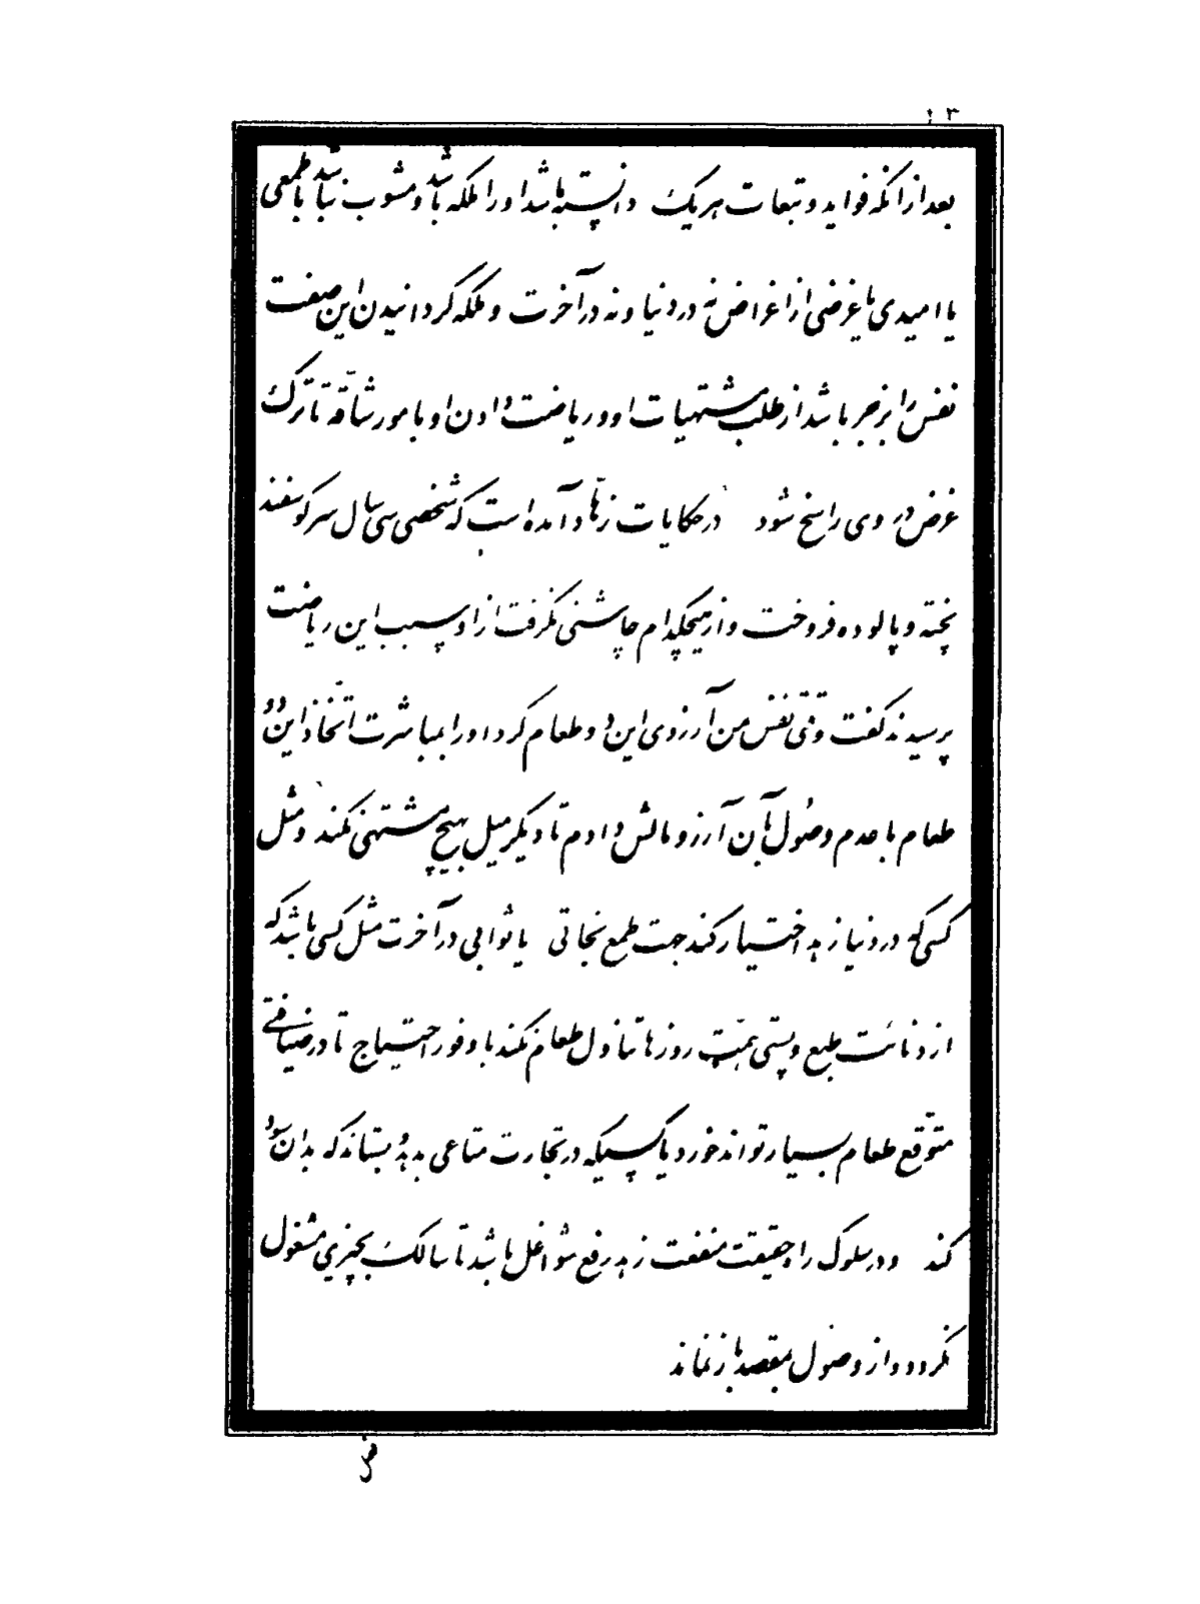 ۱۳
بعد از انکه فواید و تبعات هر یک دانسته باشد او را ملکه باشد و مشوب نباشد با طمعی
یا امیدی یا غرضی از اغراض نه در دنیا و نه در آخرت و ملکه کردانیدن این صفت
نفس را بزجر باشد از طلب مشتهیات او و ریاضت دادن او بامور شاقّه تا ترک
غرض در وی راسخ شود در حکایات زهّاد آمده است که شخصی سی سال سر کوسفند
پخته و پالوده فروخت و از هیچکدام چاشنی نکرفت ازو سبب این ریاضت
پرسیدند کفت وقتی نفس من آرزوی این دو طعام کرد او را بمباشرت اتّخاذ این دو
طعام با عدم وصول بآن آرزو مالش دادم تا دیکر میل بهیچ مشتهی نکند و مثل
کسی که در دنیا زهد اختیار کند جهت طمع نجاتی یا ثوابی در آخرت مثل کسی باشد که
از دنائت طبع و پستی همّت روزها تناول طعام نکند با وفور احتیاج تا در ضیافتی
متوقع طعام بسیار تواند خورد یا کسیکه در تجارت متاعی بدهد و بستاند که بدان سود
کند و در سلوک راه حقیقت منفعت زهد رفع شواغل باشد تا سالک بچیزی مشغول
نکردد و از وصول بمقصد باز نماند